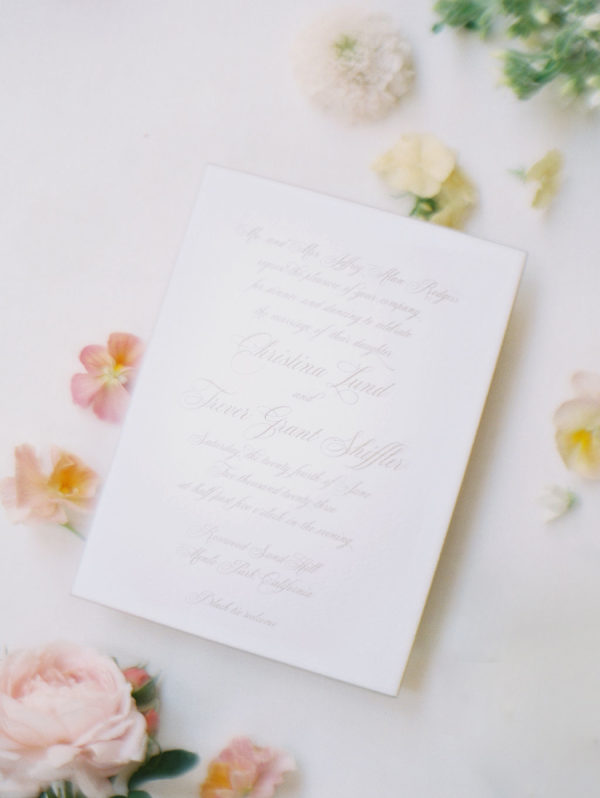 Mr. and Mrs. Jeffrey Alan Rodgers
request the pleasure of your company
for dinner and dancing to celebrate
the marriage of their daughter
Christina Lund
and
Trever Grant Shiffler
Saturday, the twenty fourth of June
Two thousand twenty three
at half past five o'clock in the evening
Rosewood Sand Hill
Menlo Park California
Black tie welcome